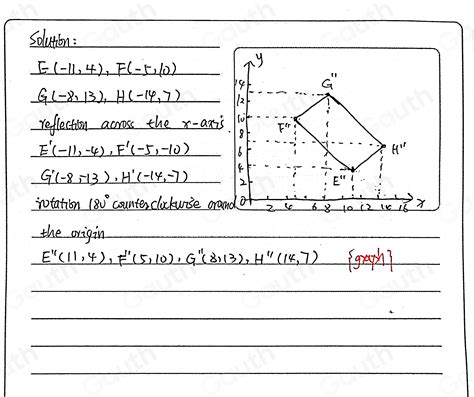 Solution:
E(-11, 4), F(-5, 10)
G(-8, 13), H(-14, 7)
reflection across the x-axis.
E'(-11, -4), F'(-5, -10)
G'(-8, -13), H'(-14, -7)
rotation 180° counterclockwise around
the origin
E''(11, 4), F''(5, 10), G''(8, 13), H''(14, 7) [graph]
y
14
12
10
8
6
4
2
0
2 4 6 8 10 12 14 16 x
G''
F''
H''
E''
Gauth